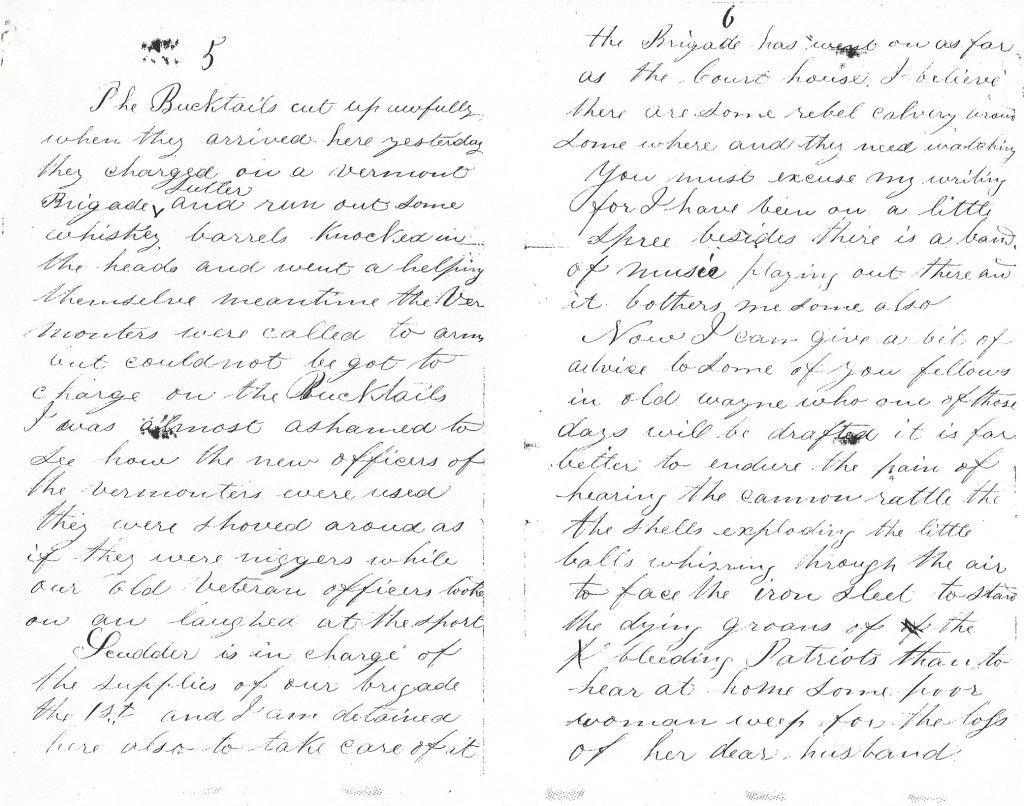 5
The Bucktails cut up awfully
when they arrived here yesterday
they charged on a vermont
Sutler
Brigade, and run out some
whiskey barrels knocked in
the heads and went a helping
themselve meantime the Ver
monters were called to arms
but could not be got to
charge on the Bucktails
I was almost ashamed to
see how the new officers of
the vermonters were used
they were shoved aroud as
if they were niggers while
our old Veteran officers looke
on an laughed at the sport
Scudder is in charge of
the supplies of our brigade
the 1st and I am detained
here also to take care of it
6
the Brigade has went on as far
as the Court house. I believe
there are some rebel calvery aroun
some where and they need watching
You must excuse my writing
for I have been on a little
spree besides there is a band
of music playing out there an
it bothers me some also
Now I can give a bit of
advise to some of you fellows
in old wayne who one of those
days will be drafted it is far
better to endure the pain of
hearing the cannon rattle the
the shells exploding the little
balls whizning through the air
to face the iron sleet to stand
the dying groans of the
bleeding Patriots than to
hear at home some poor
woman weep for the loss
of her dear husband